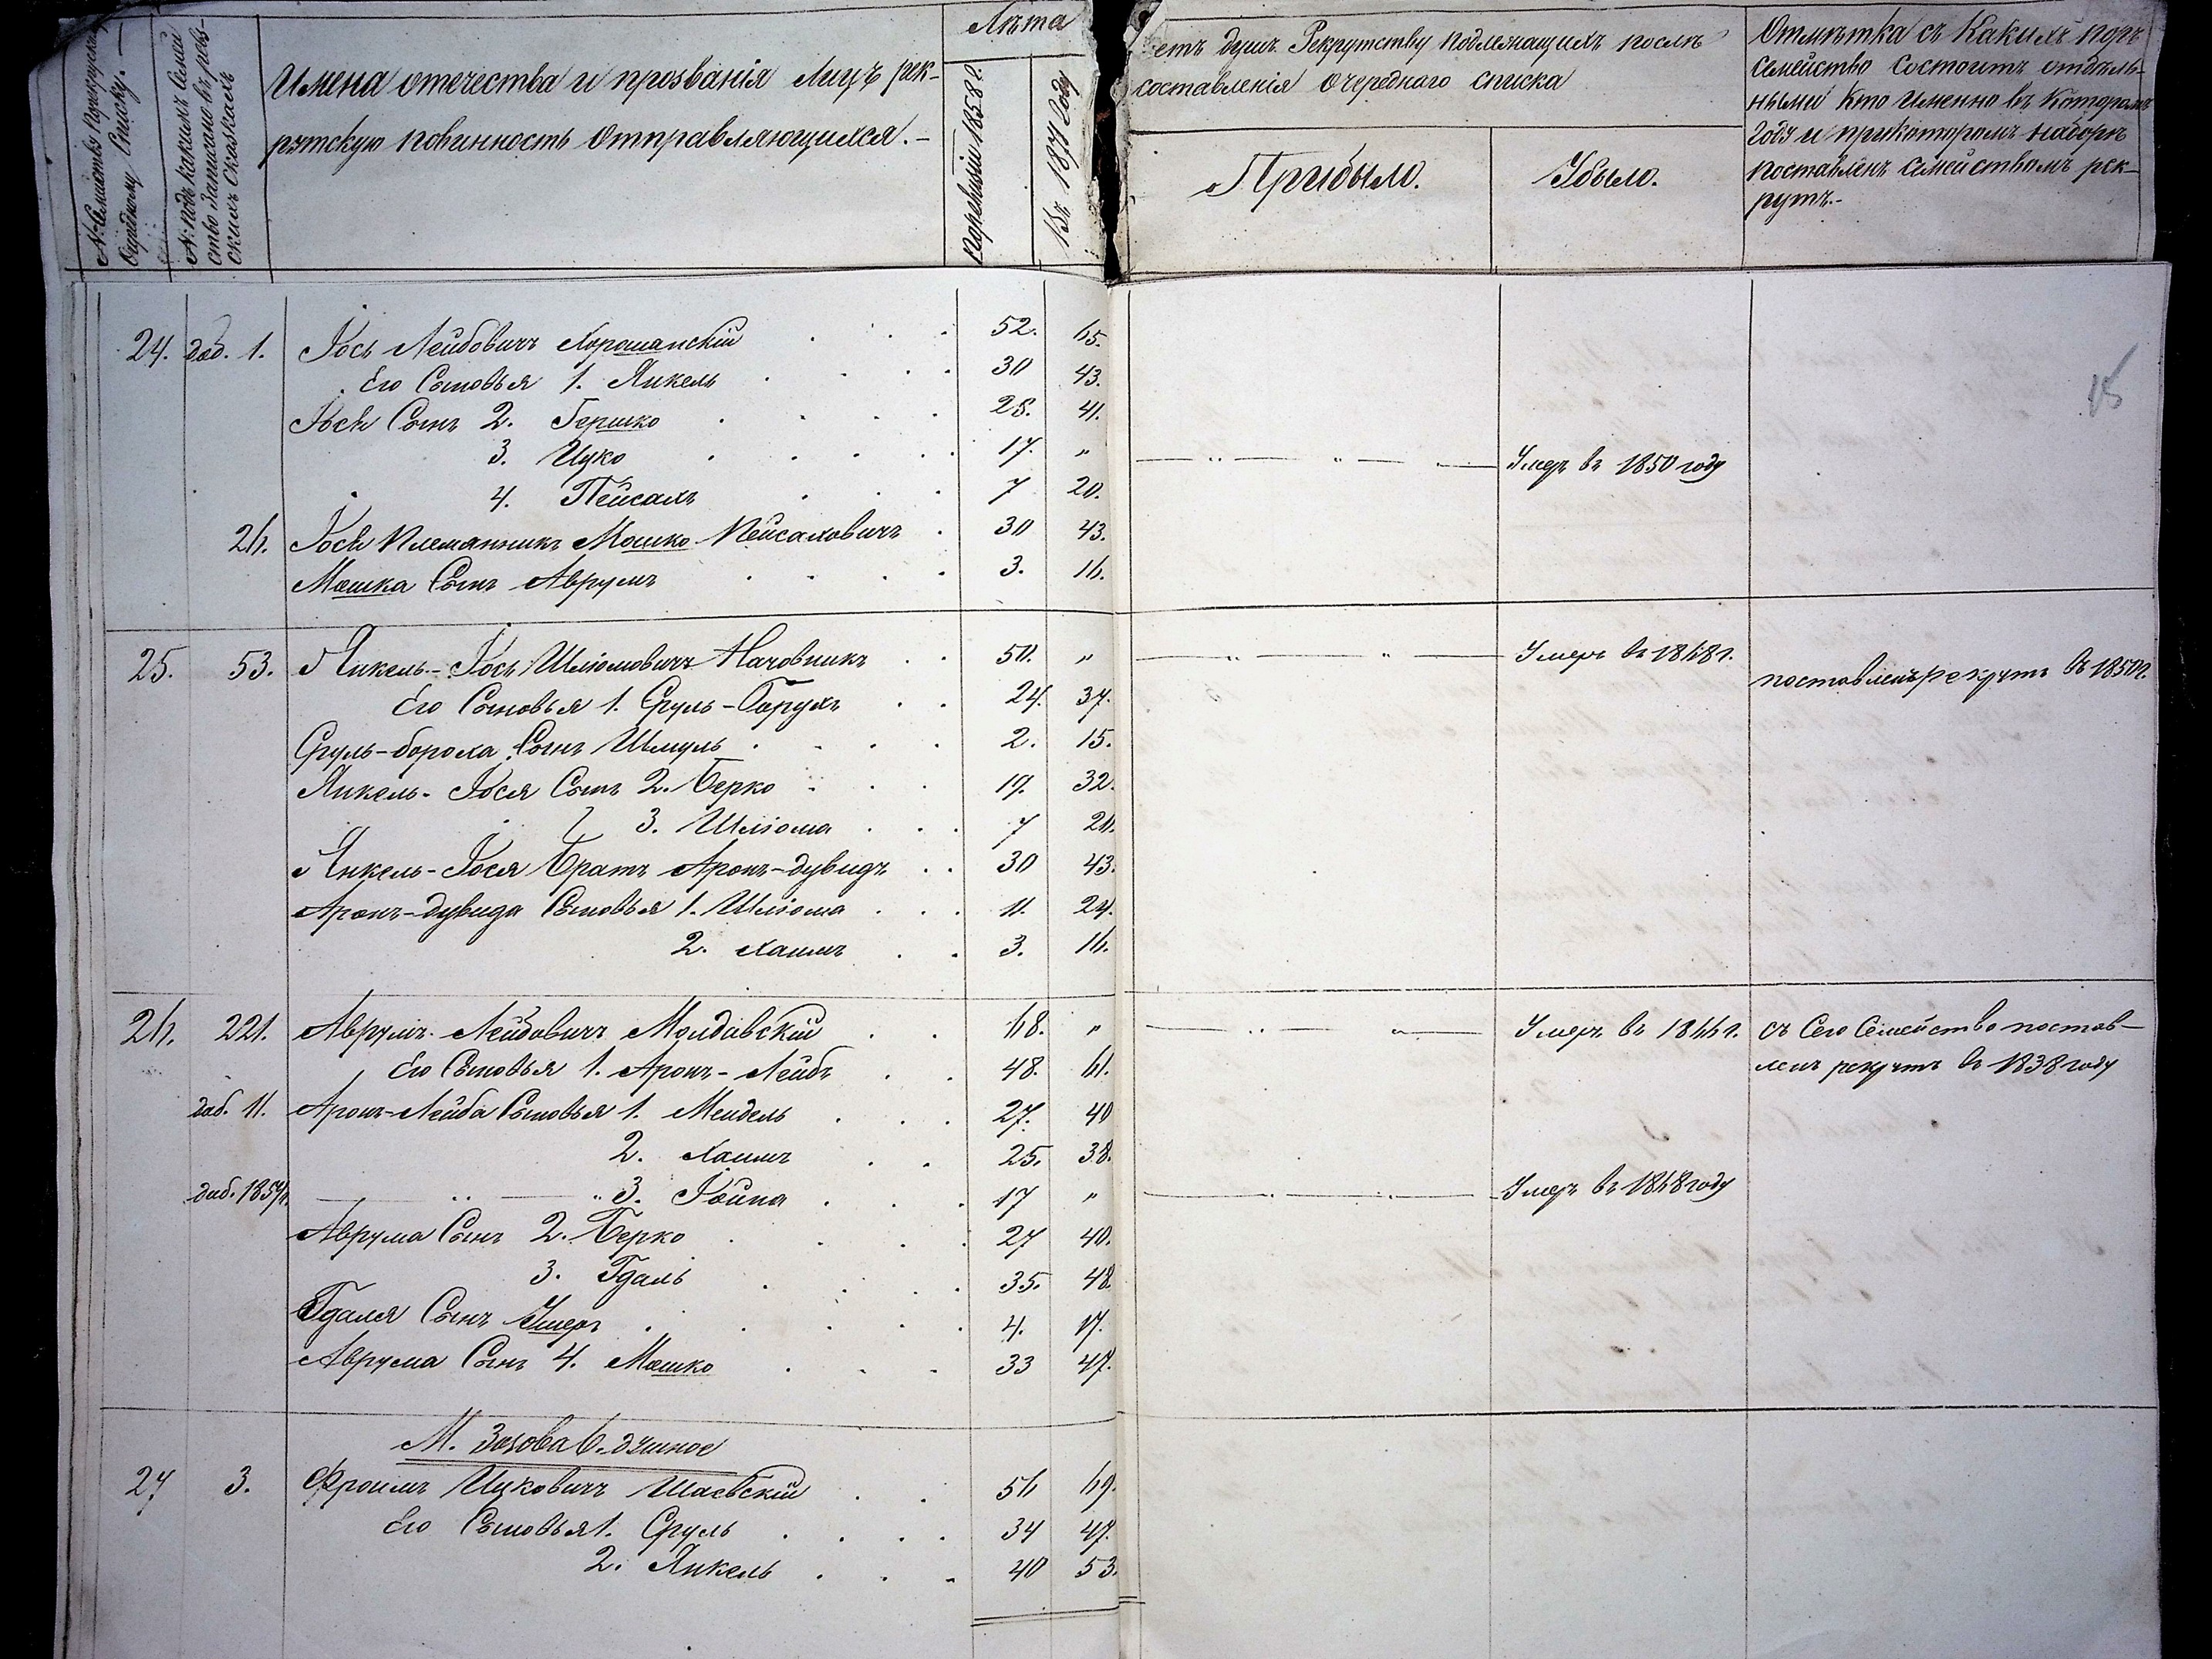 № Семейства по рекрутскому очередному списку.
№ подъ какимъ Семейство записано въ ревизскихъ Сказкахъ
Имена отечества и прозванія Лицъ рек-
рутскую повинность отправляющихся.-
Лѣта
По ревизіи 1858 г.
Въ 1871 Году
етъ душъ Рекрутству подлежащихъ послѣ
составленія очереднаго списка
Прибыло.
Убыло.
Отмѣтка съ Какихъ поръ
Семейство Состоитъ отдѣль-
нымъ Кто Именно въ Которомъ
Году и при которомъ наборѣ
поставленъ Семействомъ рек-
рутъ.-
15
24. доб. 1. Іось Лейбовичъ Хорошанскій 52. 65.
Его Сыновья 1. Янкель 30 43.
Іося Сынъ 2. Гершко 28. 41.
3. Ицко 17. " Умеръ въ 1850 году
4. Пейсахъ 7 20.
26. Іося Племянникъ Мошко Пейсаховичъ 30 43.
Мошка Сынъ Аврумъ 3. 16.
25. 53. Янкель-Іось Шліомовичъ Наховникъ 50. " Умеръ въ 1868 г. поставленъ рекрутъ въ 1850 г.
Его Сыновья 1. Сруль-Борухъ 24. 37.
Сруль-бороха Сынъ Шмуль 2. 15.
Янкель-Іося Сынъ 2. Берко 19. 32.
3. Шліома 7 20.
Янкель-Іося Братъ Аронъ-дувидъ 30 43.
Аронъ-дувида Сыновья 1. Шліома 11. 24.
2. Хаимъ 3. 16.
26. 221. Аврумъ Лейбовичъ Молдавскій 68. " Умеръ въ 1866 г. съ Сего Семейства постав-
ленъ рекрутъ въ 1838 году
Его Сыновья 1. Аронъ-Лейбъ 48. 61.
доб. 11. Аронъ-Лейба Сыновья 1. Мендель 27. 40
2. Хаимъ 25. 38.
доб. 1857 г. " 3. Іойна 17 " Умеръ въ 1868 году
Аврума Сынъ 2. Берко 27 40.
3. Гдаль 35. 48.
Гдаля Сынъ Умеръ 4. 17.
Аврума Сынъ 4. Мошко 33 47.
М. Зозова 6. душное
27 3. Фроимъ Ицковичъ Шаевскій 56 69.
Его Сыновья 1. Сруль 34 47.
2. Янкель 40 53.